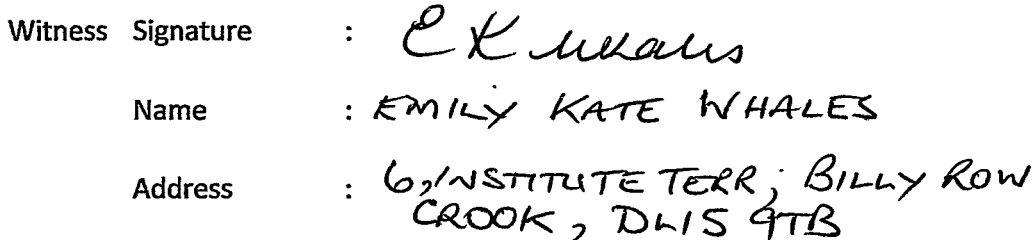 Witness Signature : E K Whales
Name : EMILY KATE WHALES
Address : 6, INSTITUTE TERR, BILLY ROW
CROOK, DL15 9TB